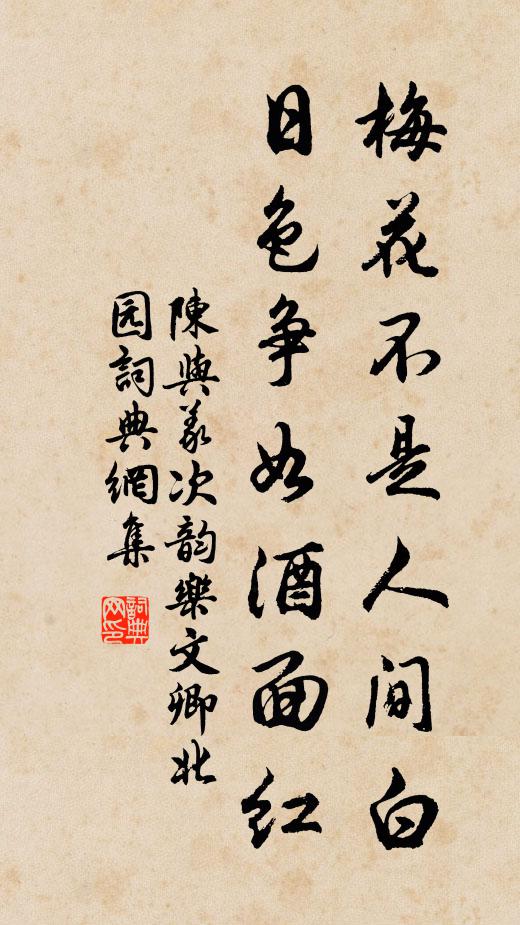 梅花不是人间白
日色争如酒面红
陳與義次韵樂文卿北
园詞典網集
詞典网印